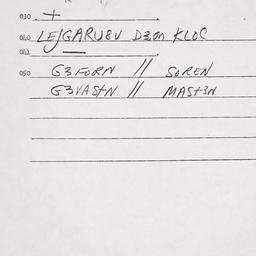 030 +
040 LEJGARU8V D3m KLOC
041 —
050 G3FORN // SOREN
G3VAStN // MASt3N